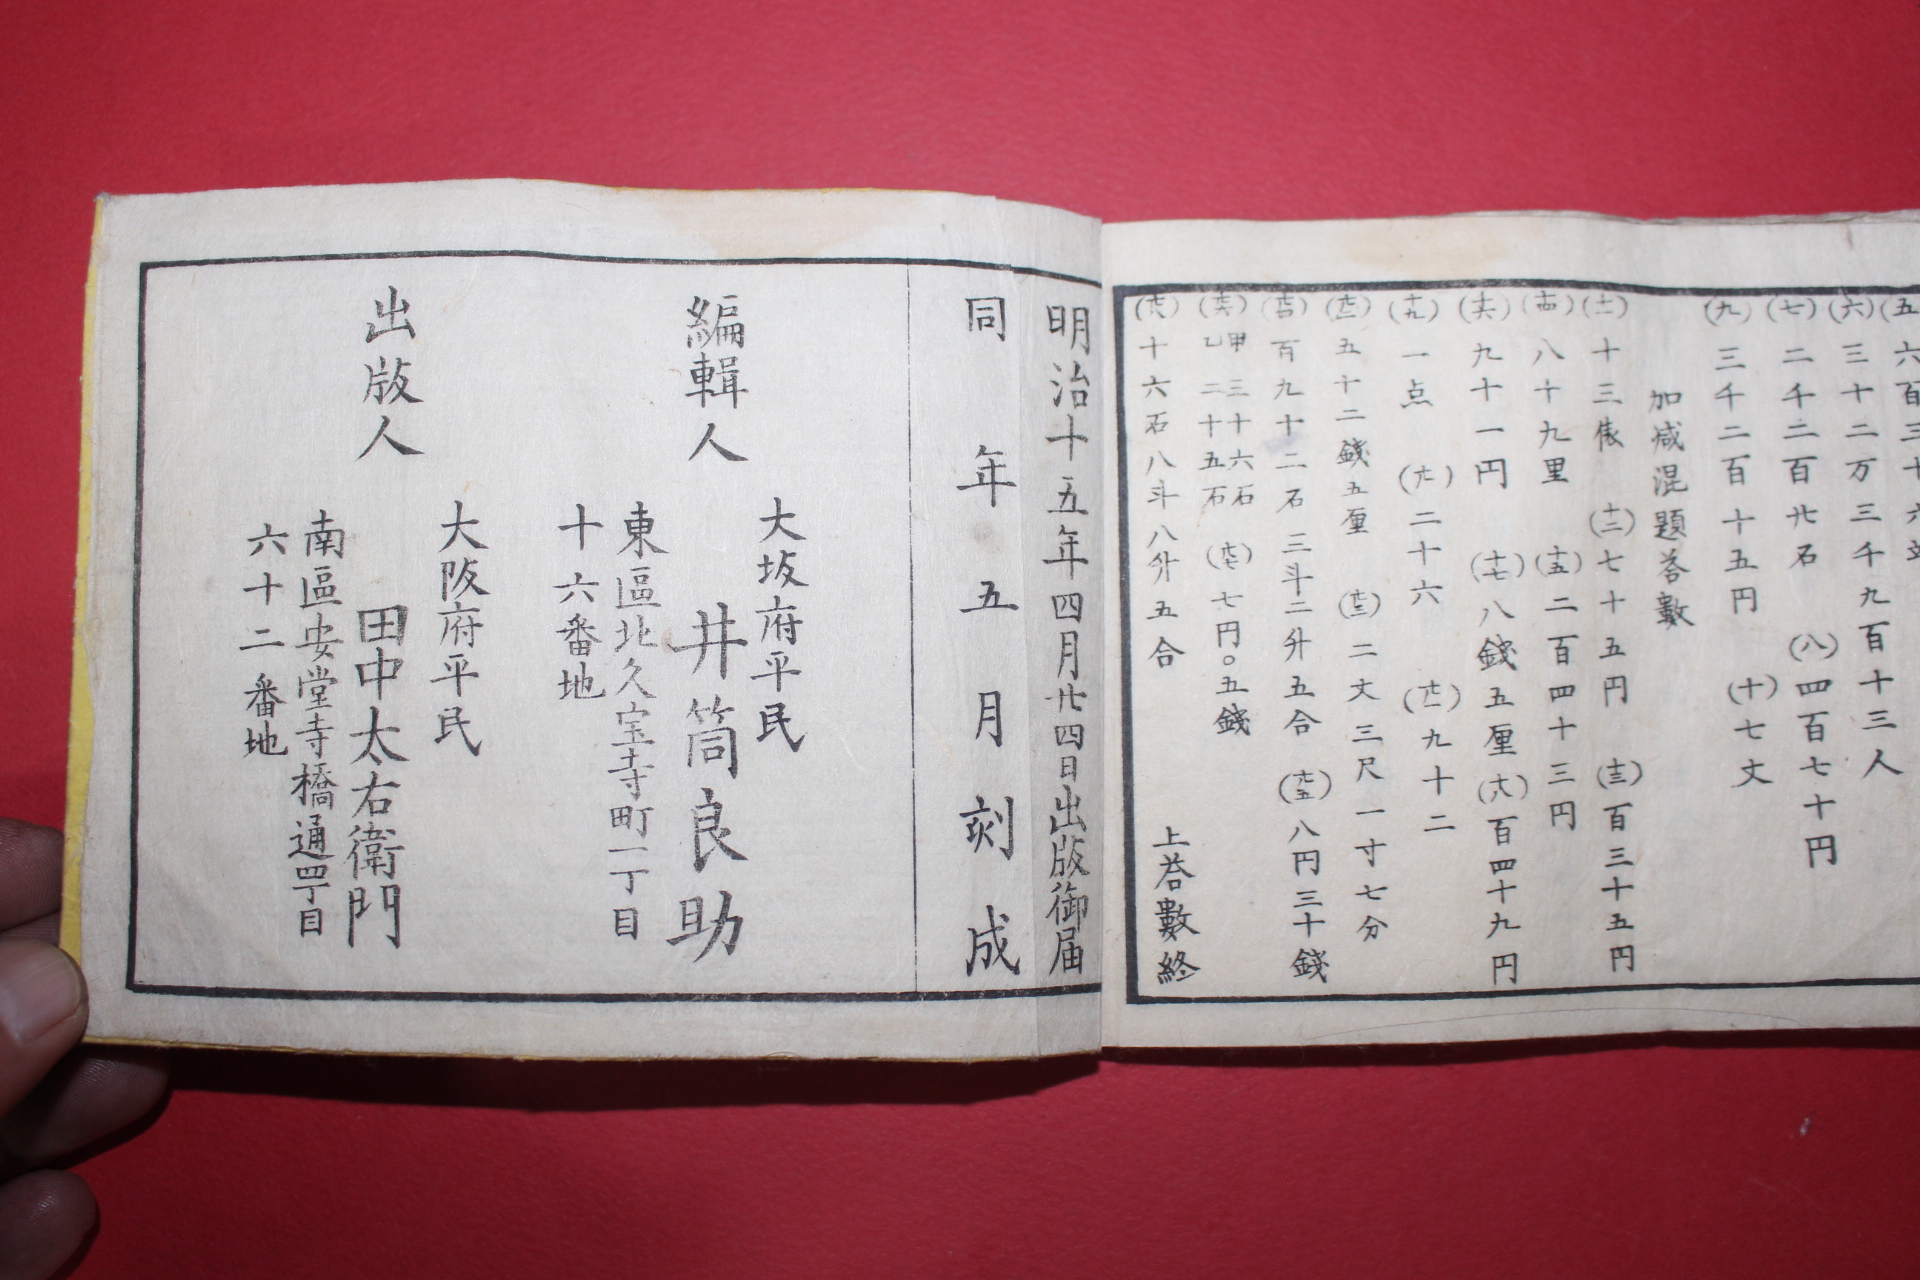 六百三十六
(六)三十二万三千九百十三人
(七)二千二百廿石 (八)四百七十円
(九)三千二百十五円 (十)七丈
加減混題荅數
(十一)十三俵 (十二)七十五円 (十三)百三十五円
(十四)八十九里 (十五)二百四十三円
(十六)九十一円 (十七)八錢五厘 (十八)百四十九円
(十九)一点 (二十)二十六 (廿一)九十二
(廿二)五十二錢五厘 (廿三)二丈三尺一寸七分
(廿四)百九十二石三斗二升五合 (廿五)八円三十錢
(廿六)甲三十六石 乙二十五石 (廿七)七円〇五錢
(廿八)十六石八斗八升五合
上荅數終
明治十五年四月廿四日出版御届
同年五月刻成
大坂府平民
編輯人 井筒良助
東區北久宝寺町一丁目
十六番地
大阪府平民
出版人 田中太右衛門
南區安堂寺橋通四丁目
六十二番地